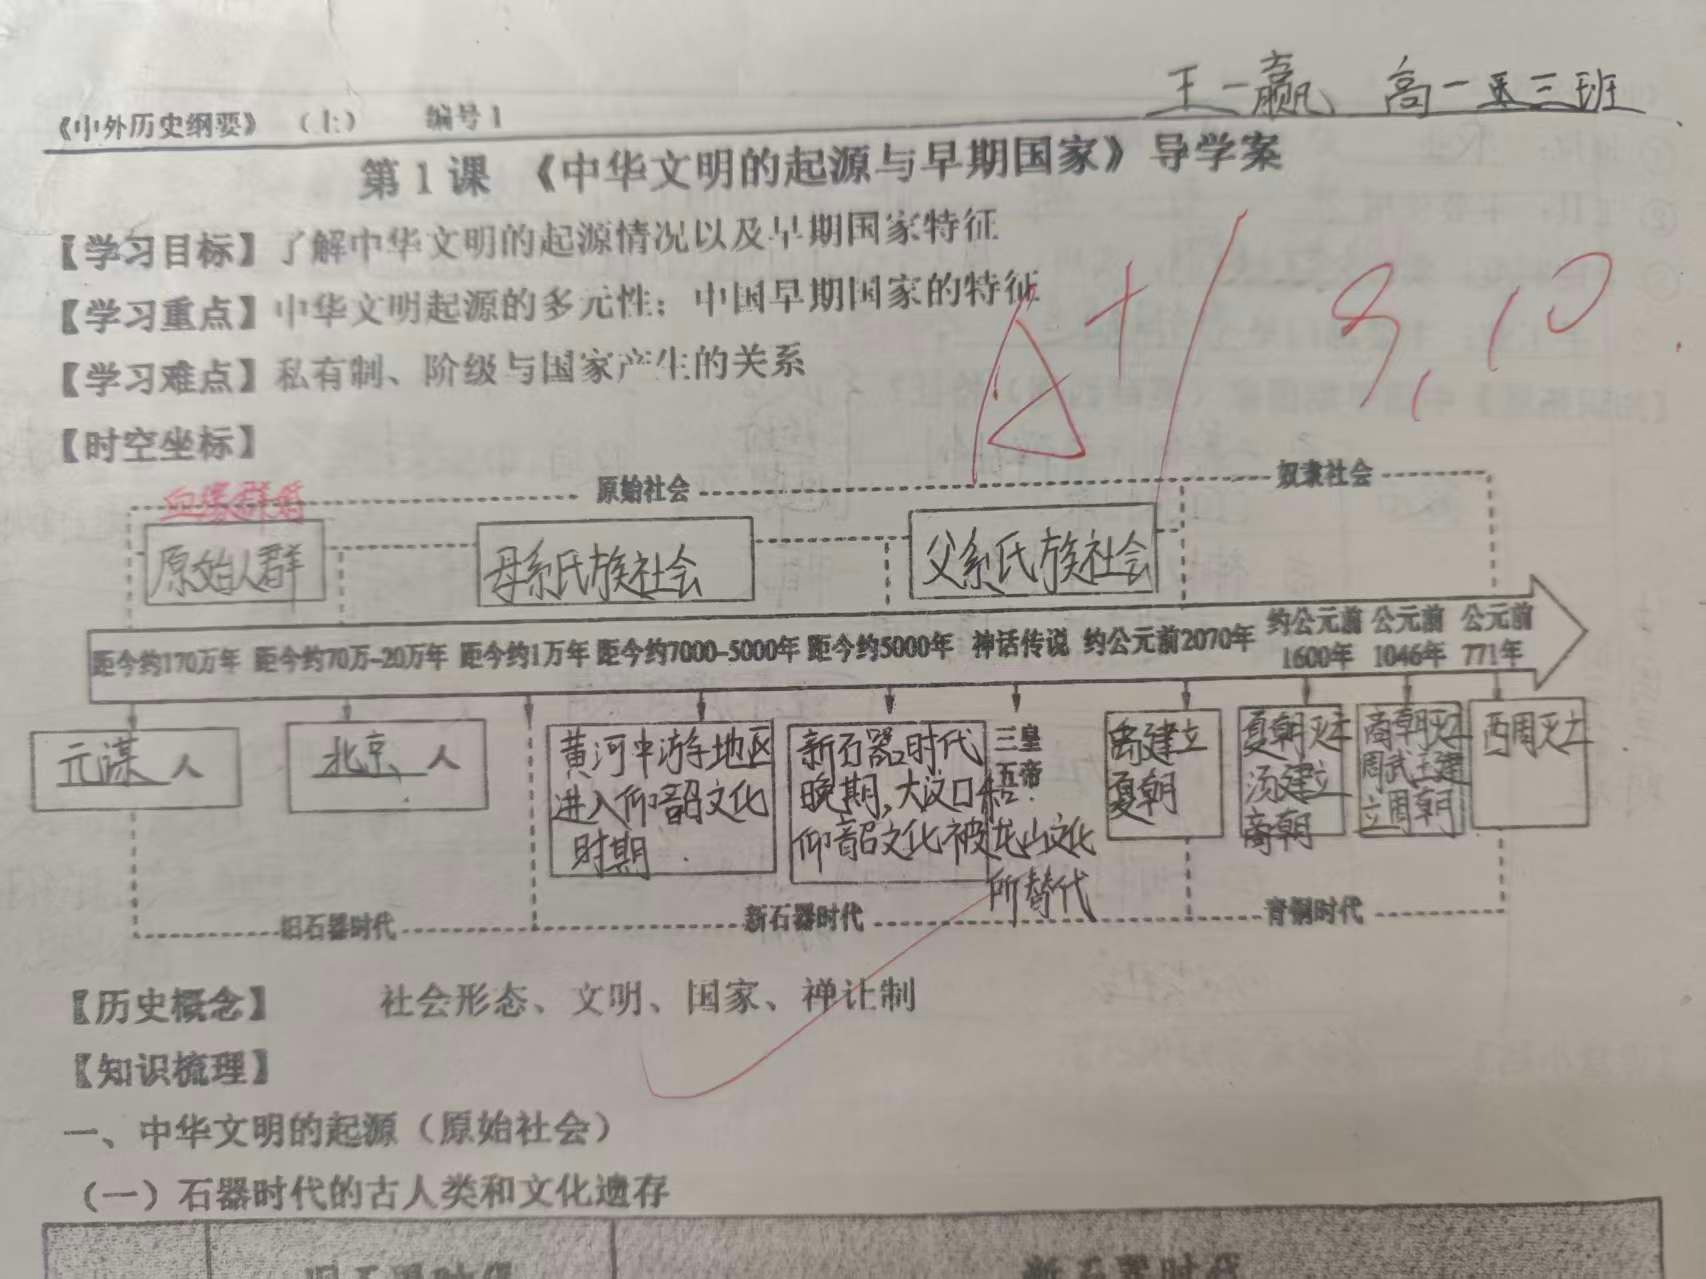 王一赢 高一 三班
《中外历史纲要》（上） 编号1
第1课 《中华文明的起源与早期国家》导学案
【学习目标】了解中华文明的起源情况以及早期国家特征
【学习重点】中华文明起源的多元性；中国早期国家的特征
【学习难点】私有制、阶级与国家产生的关系
【时空坐标】
A+ 9.10
原始社会 奴隶社会
血缘群婚
原始人群 母系氏族社会 父系氏族社会
距今约170万年 距今约70万-20万年 距今约1万年 距今约7000-5000年 距今约5000年 神话传说 约公元前2070年 约公元前1600年 公元前1046年 公元前771年
元谋人
北京人
黄河中游地区
进入仰韶文化
时期
新石器时代
晚期，大汶口和
仰韶文化被龙山文化
所替代
三皇
五帝
禹建立
夏朝
夏朝灭亡
汤建立
商朝
商朝灭亡
周武王建
立周朝
西周灭亡
旧石器时代 新石器时代 青铜时代
【历史概念】 社会形态、文明、国家、禅让制
【知识梳理】
一、中华文明的起源（原始社会）
（一）石器时代的古人类和文化遗存
旧石器时代 新石器时代